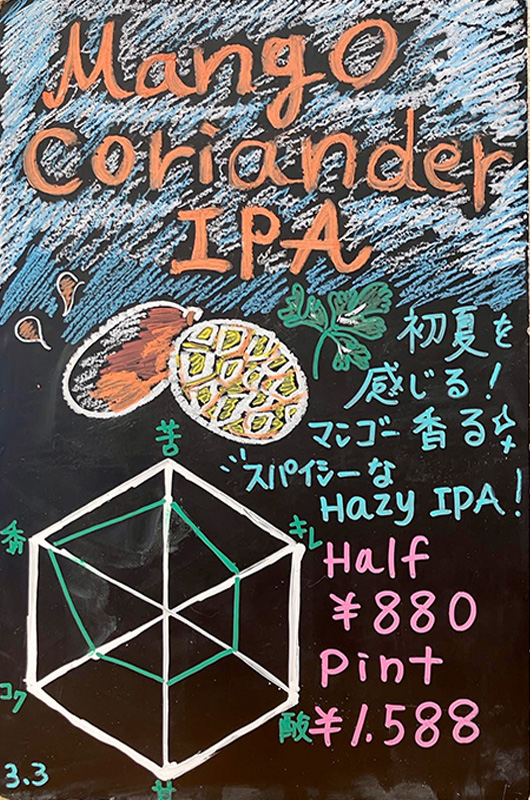 Mango
Coriander
IPA
初夏を
感じる!
マンゴー香る
スパイシーな
Hazy IPA!
苦
キレ
香
Half
¥880
Pint
コク
酸
¥1.588
甘
3.3